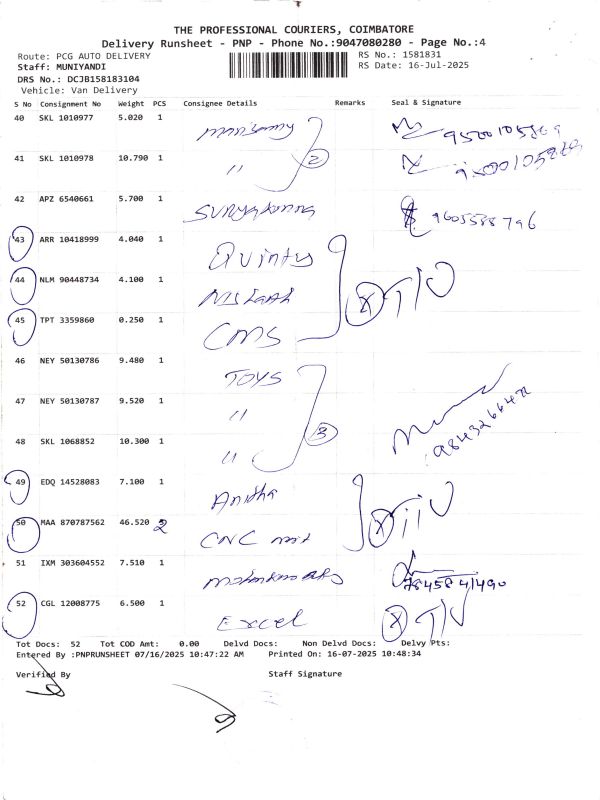 THE PROFESSIONAL COURIERS, COIMBATORE
Delivery Runsheet - PNP - Phone No.:9047080280 - Page No.:4
Route: PCG AUTO DELIVERY RS No.: 1581831
Staff: MUNIYANDI RS Date: 16-Jul-2025
DRS No.: DCJB158183104
Vehicle: Van Delivery
S No Consignment No Weight PCS Consignee Details Remarks Seal & Signature
40 SKL 1010977 5.020 1
41 SKL 1010978 10.790 1 " 2
42 APZ 6540661 5.700 1 9605588796
43 ARR 10418999 4.040 1 Quinty
44 NLM 90448734 4.100 1
45 TPT 3359860 0.250 1 CMS
46 NEY 50130786 9.480 1 TOYS
47 NEY 50130787 9.520 1 "
48 SKL 1068852 10.300 1 " 3
49 EDQ 14528083 7.100 1 Anitha
50 MAA 870787562 46.520 2 CNC
51 IXM 303604552 7.510 1
52 CGL 12008775 6.500 1 Excel
Tot Docs: 52 Tot COD Amt: 0.00 Delvd Docs: Non Delvd Docs: Delvy Pts:
Entered By :PNPRUNSHEET 07/16/2025 10:47:22 AM Printed On: 16-07-2025 10:48:34
Verified By Staff Signature